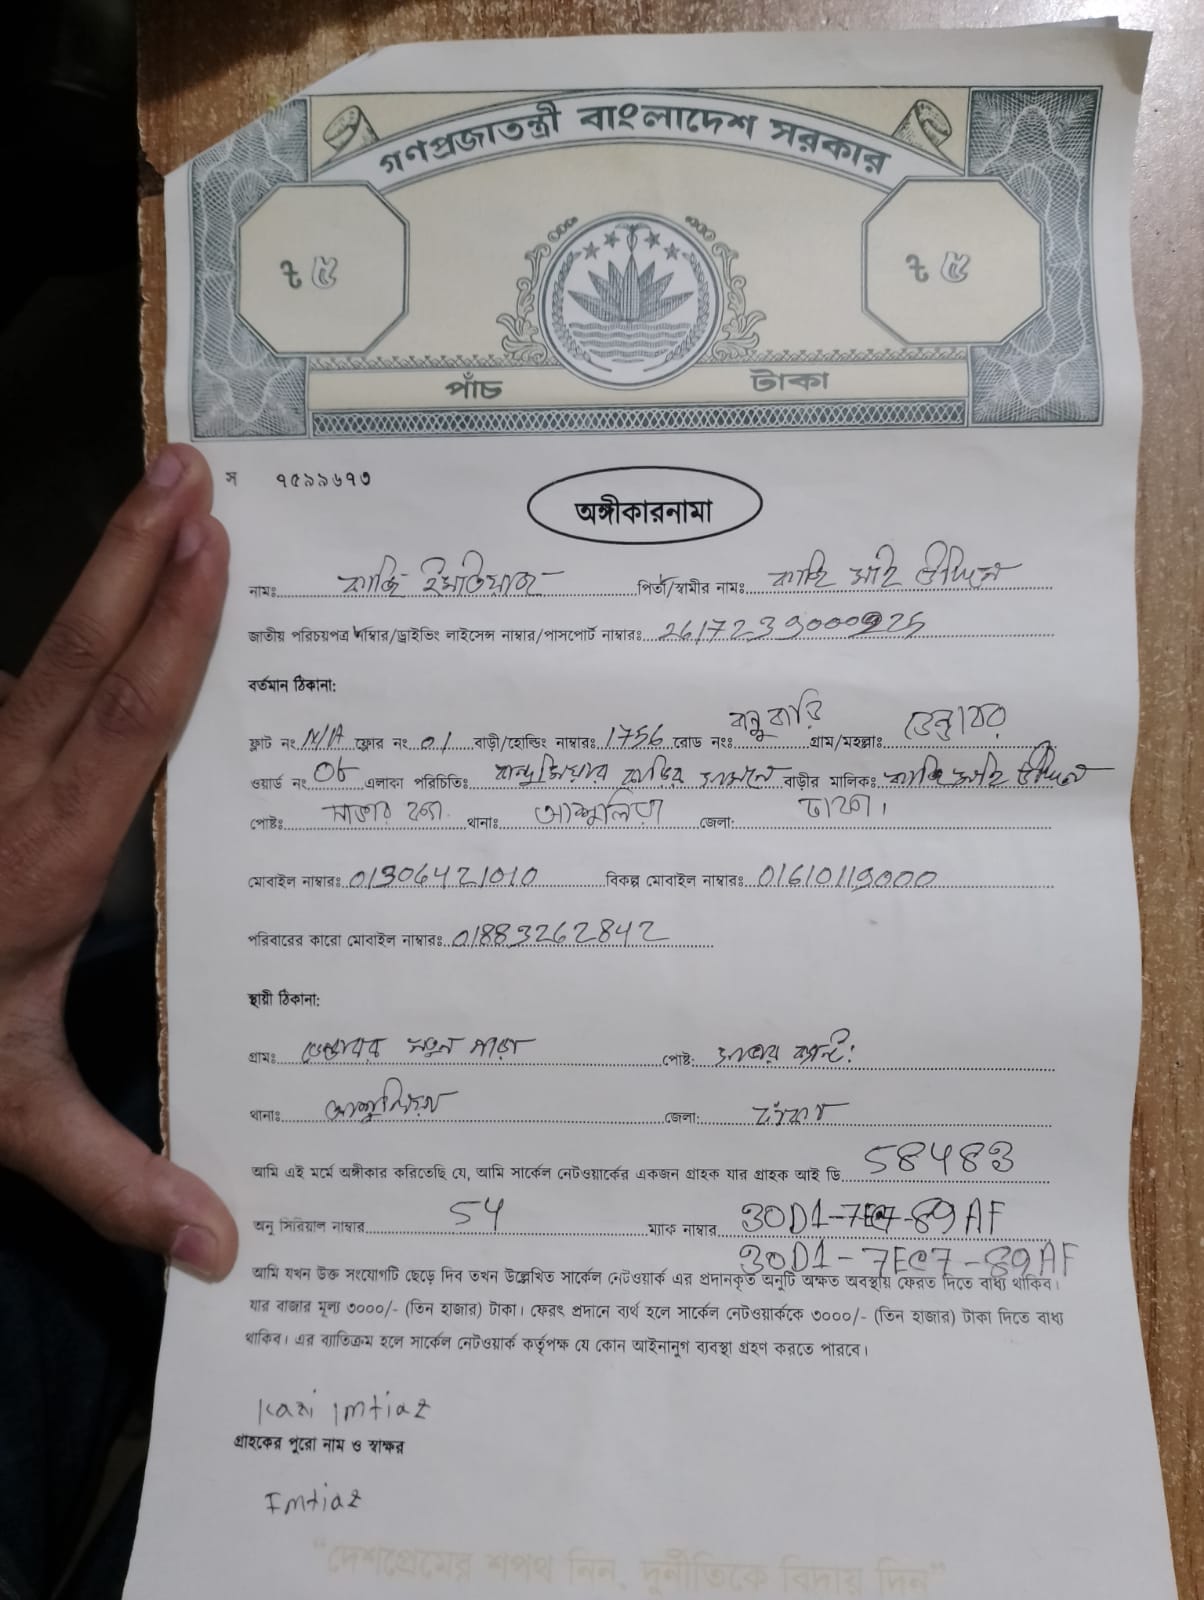 গণপ্রজাতন্ত্রী বাংলাদেশ সরকার
৳ ৫ ৳ ৫
পাঁচ টাকা
স ৭৫৯৯৬৭৩
অঙ্গীকারনামা
নামঃ কাজি ইমতিয়াজ পিতা/স্বামীর নামঃ কাজি মাই উদ্দিন
জাতীয় পরিচয়পত্র নাম্বার/ড্রাইভিং লাইসেন্স নাম্বার/পাসপোর্ট নাম্বারঃ
বর্তমান ঠিকানা:
ফ্লাট নং N/A ফ্লোর নং 01 বাড়ী/হোল্ডিং নাম্বারঃ 1756 রোড নংঃ গ্রাম/মহল্লাঃ
ওয়ার্ড নং 08 এলাকা পরিচিতিঃ বাড়ীর মালিকঃ কাজি মাই উদ্দিন
পোষ্টঃ থানাঃ আশুলিয়া জেলা: ঢাকা।
মোবাইল নাম্বারঃ 01306421010 বিকল্প মোবাইল নাম্বারঃ 01610119000
পরিবারের কারো মোবাইল নাম্বারঃ 01883262842
স্থায়ী ঠিকানা:
গ্রামঃ পোষ্ট:
থানাঃ আশুলিয়া জেলা: ঢাকা
আমি এই মর্মে অঙ্গীকার করিতেছি যে, আমি সার্কেল নেটওয়ার্কের একজন গ্রাহক যার গ্রাহক আই ডি 58483
অনু সিরিয়াল নাম্বার 54 ম্যাক নাম্বার 30D1-7EC7-89AF
30D1-7EC7-89AF
আমি যখন উক্ত সংযোগটি ছেড়ে দিব তখন উল্লেখিত সার্কেল নেটওয়ার্ক এর প্রদানকৃত অনুটি অক্ষত অবস্থায় ফেরত দিতে বাধ্য থাকিব।
যার বাজার মূল্য ৩০০০/- (তিন হাজার) টাকা। ফেরৎ প্রদানে ব্যর্থ হলে সার্কেল নেটওয়ার্ককে ৩০০০/- (তিন হাজার) টাকা দিতে বাধ্য
থাকিব। এর ব্যাতিক্রম হলে সার্কেল নেটওয়ার্ক কর্তৃপক্ষ যে কোন আইনানুগ ব্যবস্থা গ্রহণ করতে পারবে।
Kazi Imtiaz
গ্রাহকের পুরো নাম ও স্বাক্ষর
Imtiaz
“দেশপ্রেমের শপথ নিন, দুর্নীতিকে বিদায় দিন”